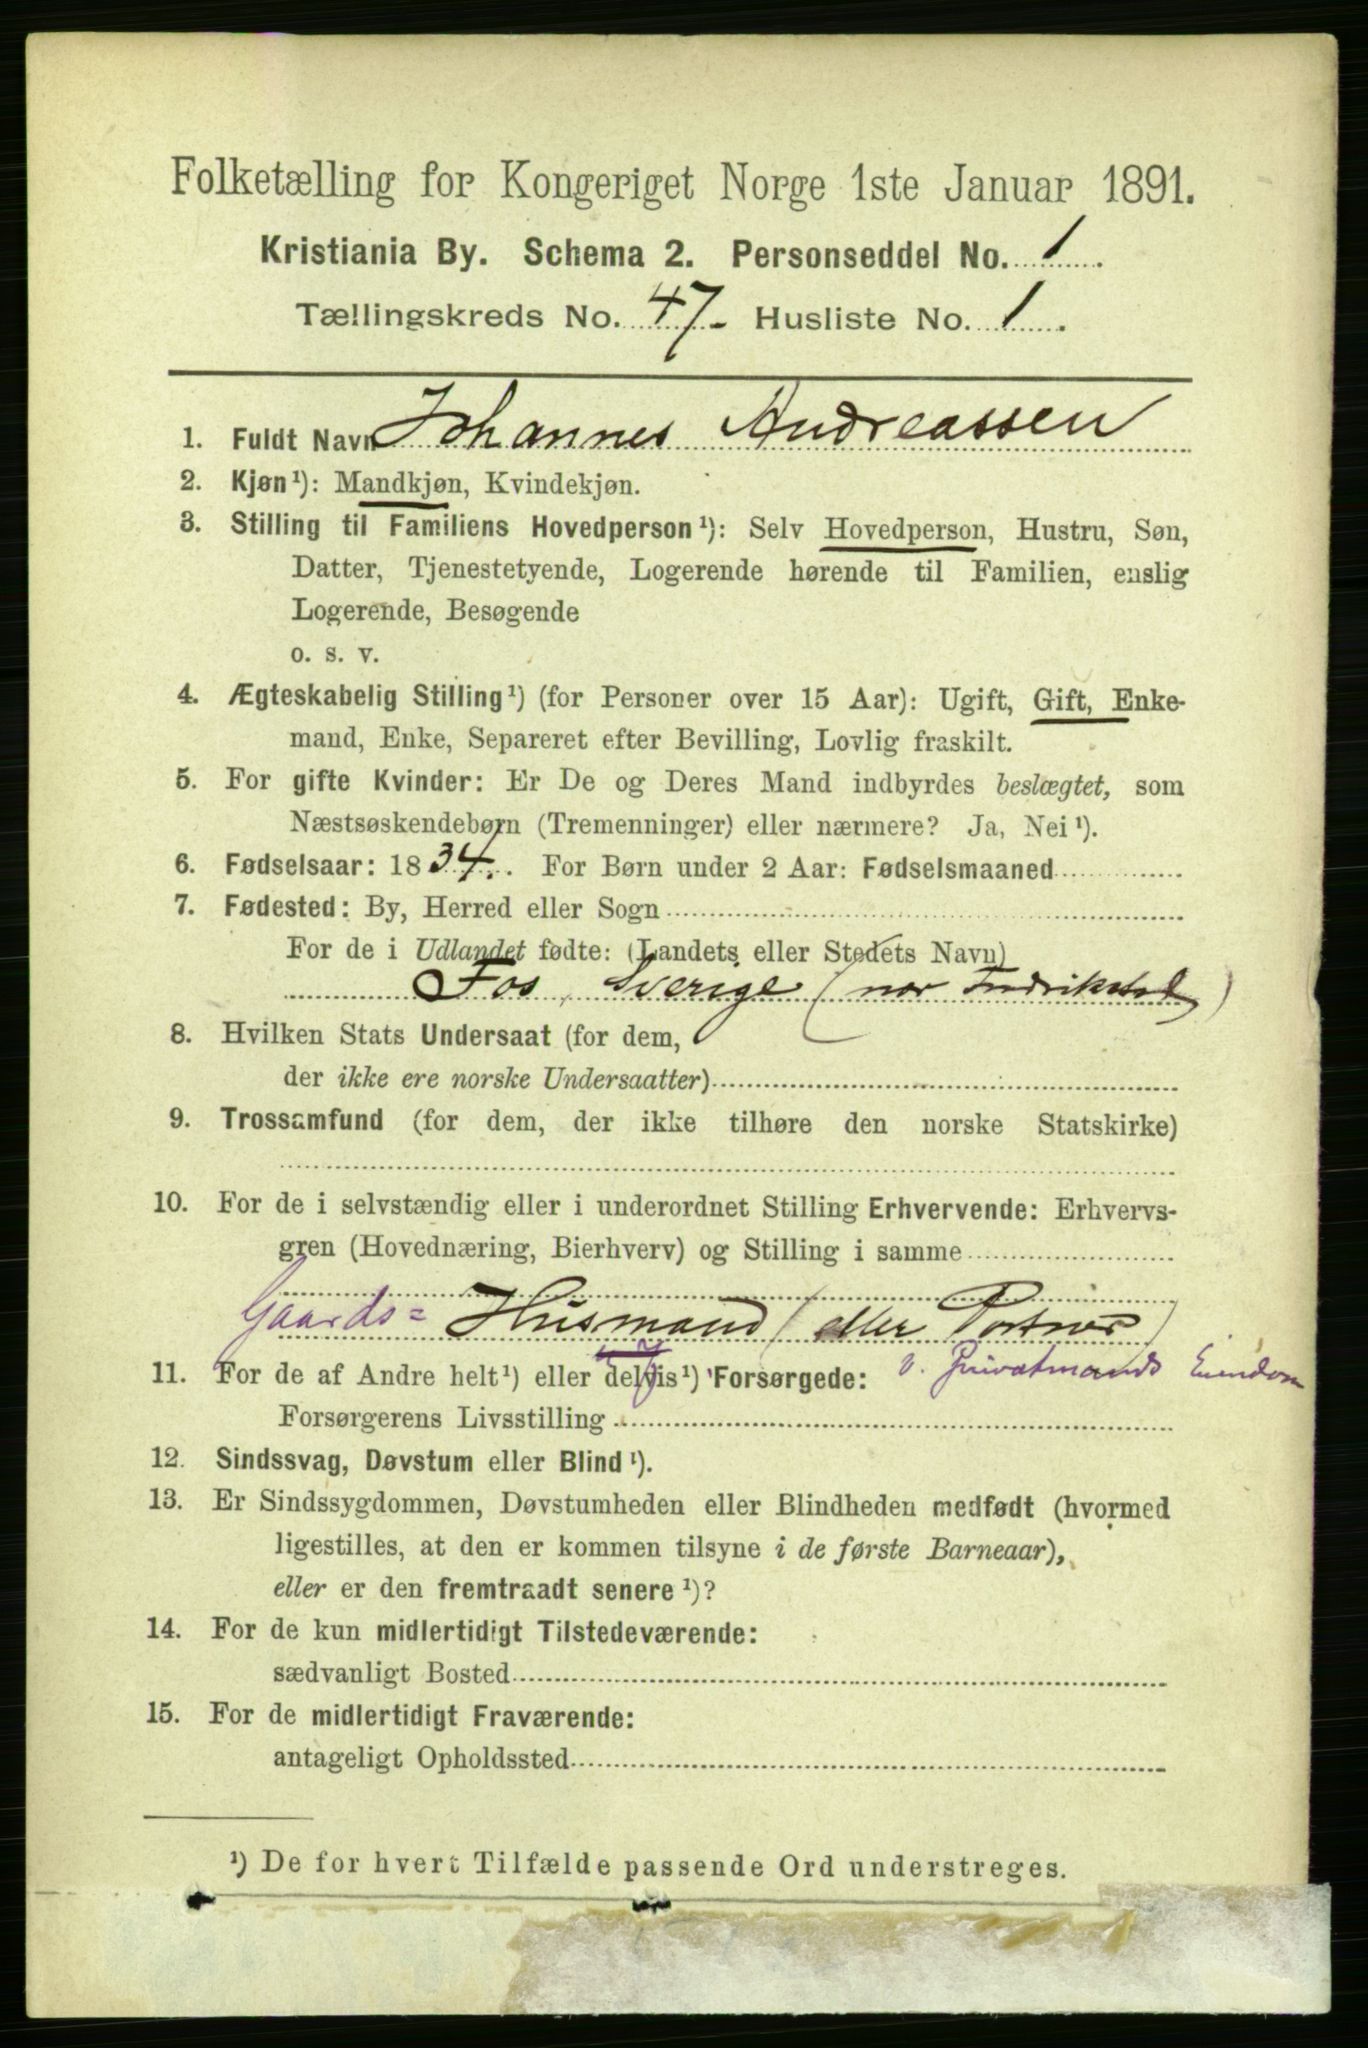 Folketælling for Kongeriget Norge 1ste Januar 1891.
Kristiania By. Schema 2. Personseddel No. 1.
Tællingskreds No. 47. Husliste No. 1.
1. Fuldt Navn Johannes Andreassen
2. Kjøn ¹): Mandkjøn, Kvindekjøn.
3. Stilling til Familiens Hovedperson ¹): Selv Hovedperson, Hustru, Søn,
Datter, Tjenestetyende, Logerende hørende til Familien, enslig
Logerende, Besøgende
o. s. v.
4. Ægteskabelig Stilling ¹) (for Personer over 15 Aar): Ugift, Gift, Enke-
mand, Enke, Separeret efter Bevilling, Lovlig fraskilt.
5. For gifte Kvinder: Er De og Deres Mand indbyrdes beslægtet, som
Næstsøskendebørn (Tremenninger) eller nærmere? Ja, Nei ¹).
6. Fødselsaar: 1834. For Børn under 2 Aar: Fødselsmaaned
7. Fødested: By, Herred eller Sogn
For de i Udlandet fødte: (Landets eller Stedets Navn)
Fos, Sverige (nær Fredrikshal)
8. Hvilken Stats Undersaat (for dem,
der ikke ere norske Undersaatter)
9. Trossamfund (for dem, der ikke tilhøre den norske Statskirke)
10. For de i selvstændig eller i underordnet Stilling Erhvervende: Erhvervs-
gren (Hovednæring, Bierhverv) og Stilling i samme
Gaards= Husmand (eller Portner)
11. For de af Andre helt ¹) eller delvis ¹) Forsørgede: v. Privatmands Eiendom
Forsørgerens Livsstilling
12. Sindssvag, Døvstum eller Blind ¹).
13. Er Sindssygdommen, Døvstumheden eller Blindheden medfødt (hvormed
ligestilles, at den er kommen tilsyne i de første Barneaar),
eller er den fremtraadt senere ¹)?
14. For de kun midlertidigt Tilstedeværende:
sædvanligt Bosted
15. For de midlertidigt Fraværende:
antageligt Opholdssted
¹) De for hvert Tilfælde passende Ord understreges.